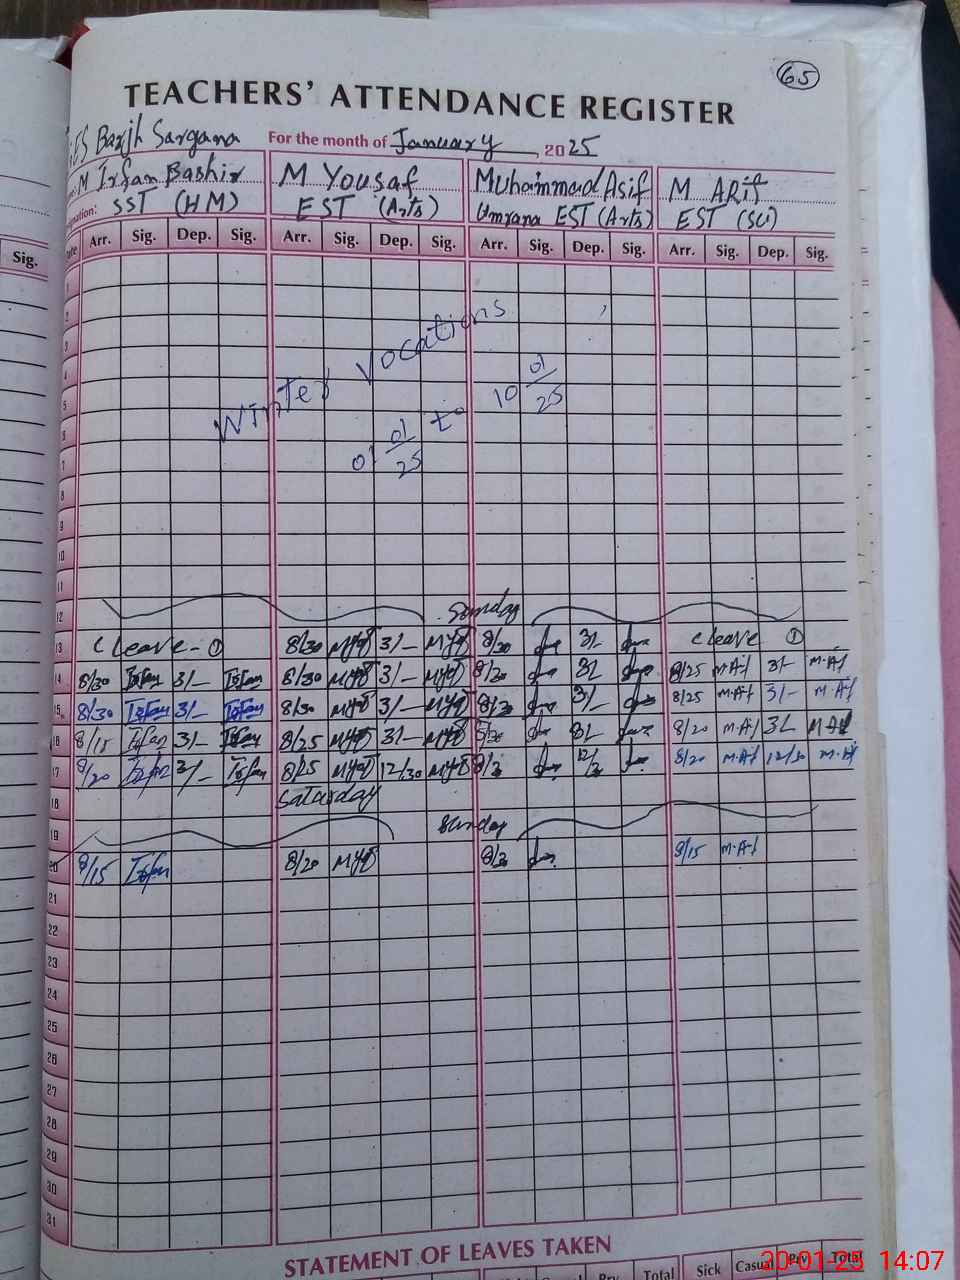 65
TEACHERS' ATTENDANCE REGISTER
Barjh Sargana For the month of January, 2025
M Irfan Bashir M Yousaf Muhammad Asif M ARif
SST (HM) EST (Arts) Umrana EST (Arts) EST (Sci)
Sig.
Arr. Sig. Dep. Sig. Arr. Sig. Dep. Sig. Arr. Sig. Dep. Sig. Arr. Sig. Dep. Sig.
1
2
3
4
5
6
7
8
9
10
11
Winter Vocations
01 01/25 to 10 01/25
12 Sunday
13 C Leave - ① 8/30 3/- 8/30 3/- C Leave ①
14 8/30 Irfan 3/- Irfan 8/30 3/- 8/30 3/- 8/25 M.A 3/- M.A
15 8/30 Irfan 3/- Irfan 8/30 3/- 8/30 3/- 8/25 M.A 3/- M.A
16 8/15 Irfan 3/- Irfan 8/25 3/- 3/- 8/20 M.A 3/- M.A
17 8/20 Irfan 3/- Irfan 8/25 12/30 12/30 8/20 M.A 12/30 M.A
18 Saturday
19 Sunday
20 8/15 Irfan 8/20 8/30 8/15 M.A
21
22
23
24
25
26
27
28
29
30
31
STATEMENT OF LEAVES TAKEN
Total Sick Casual Prv. Total
20-01-25 14:07